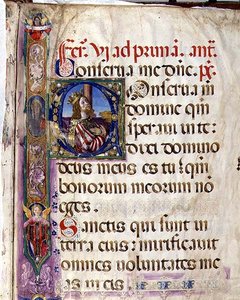 Fer. VI ad primā. ant.
Conserua me dñe. ps.
Conserua me
domine qm̄
speraui in te:
dixi domino
deus meus es tu: qm̄
bonorum meorum non
eges.
Sanctis qui sunt in
terra eius: mirificauit
omnes uoluntates me
as in eis.